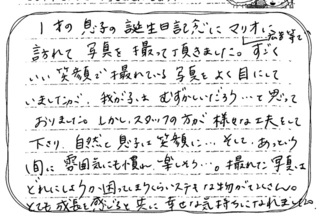 1才の息子の誕生日記念にマリオに
訪れて写真を撮って頂きました。すごく
いい笑顔で撮れている写真をよく目にして
いましたが、我が子は むずかしいだろう…と思って
おりました。しかし、スタッフの方が様々な工夫をして
下さり、自然と息子は笑顔に…そして、あっという
間に雰囲気にも慣れ楽しそう…。撮れた写真は
どれにしようか困ってしまうくらいステキな物がたくさん。
とても成長を感じると共に幸せな気持ちになれました。